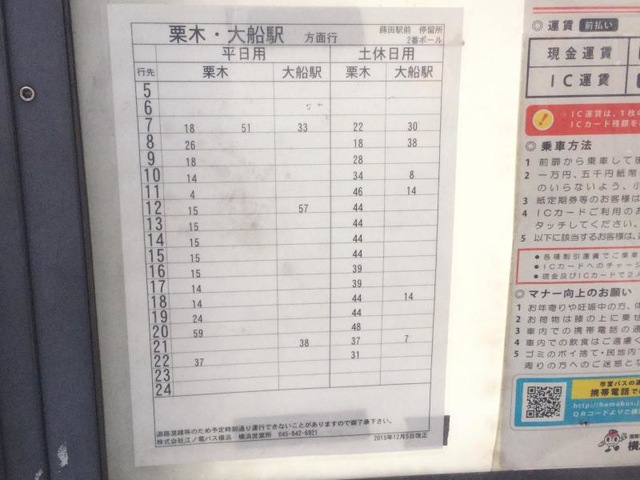 栗木・大船駅 方面行
蒔田駅前 停留所
2番ポール
平日用 土休日用
行先 栗木 大船駅 栗木 大船駅
5
6
7 18 51 33 22 30
8 26 18 38
9 18 28
10 14 34 8
11 4 46 14
12 15 57 44
13 15 44
14 15 44
15 15 44
16 15 39
17 14 39
18 14 44 14
19 24 44
20 59 48
21 38 37 7
22 37 31
23
24
道路混雑等のため予定時間通り運行できないことがありますので御了承下さい。
株式会社江ノ電バス横浜 横浜営業所 045-842-6921
2015年12月5日改正
◎ 運賃 前払い
現金運賃
IC運賃
※IC運賃は、1枚の
ICカード残額を
◎ 乗車方法
1 前扉から乗車して
2 一万円、五千円紙幣
のいらないよう、
3 紙定期券等のお客様は
4 ICカードご利用のお
タッチしてください。
5 以下に該当するお客様は、
●各種割引運賃でご乗車
●ICカードへのチャー
●現金及びICカードで2人
◎ マナー向上のお願い
1 お年寄りや妊娠中の方、
2 お荷物は膝の上に乗せ
3 車内での携帯電話の通
4 車内での飲食はご遠慮く
5 ゴミのポイ捨て・民地内
周りの方へのご迷惑と
市営バスの運
携帯電話で
http://hamabus.
QRコードよりご
横